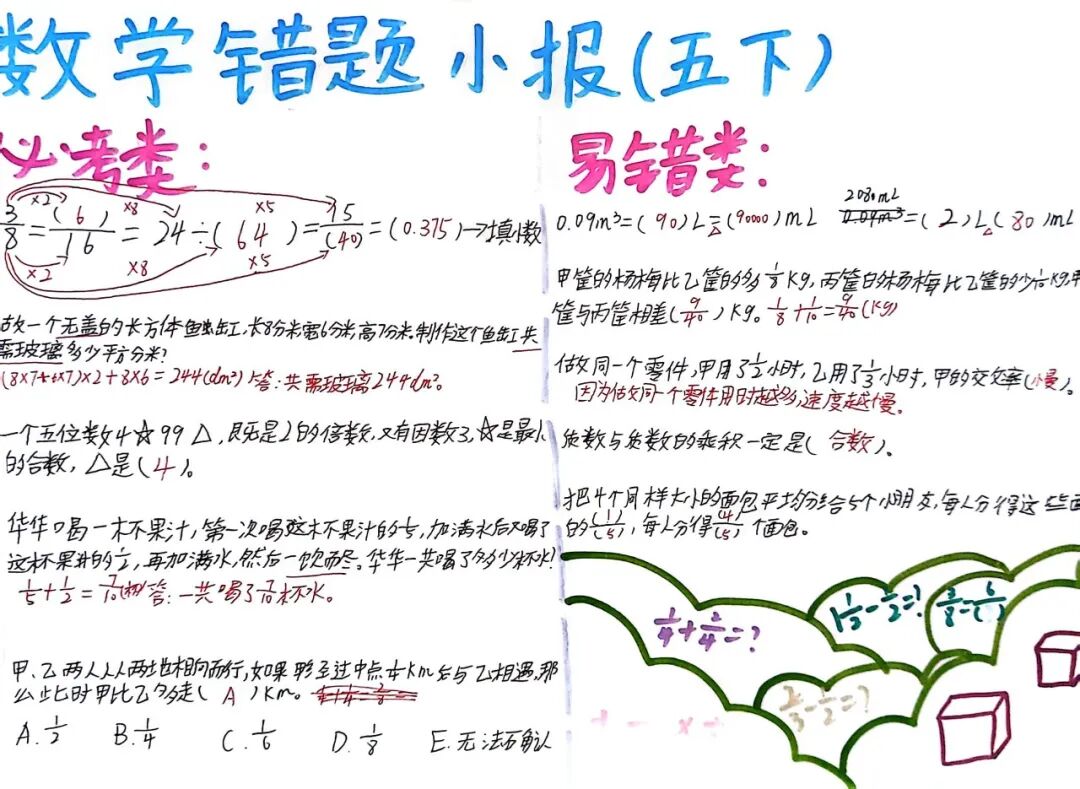 数学错题小报(五下)
必考类:
×2 ×8 ×5
3/8=(6)/16=24÷(64)=15/(40)=(0.375)→填小数
×2 ×8 ×5
做一个无盖的长方体鱼缸,长8分米宽6分米高7分米。制作这个鱼缸共
需玻璃多少平方分米?
(8×7+6×7)×2+8×6=244(dm²) 答:共需玻璃244dm²。
一个五位数4☆99△,既是2的倍数,又有因数3,☆是最小
的合数,△是(4)。
华华喝一杯果汁,第一次喝这杯果汁的1/5,加满水后又喝了
这杯果汁的1/2,再加满水,然后一饮而尽。华华一共喝了多少杯水?
1/5+1/2=7/10(杯) 答:一共喝了7/10杯水。
甲、乙两人从两地相向而行,如果 过中点1/4km后与乙相遇,那
么此时甲比乙多走(A)km。
A.1/2 B.1/4 C.1/6 D.1/8 E.无法确认
易错类:
0.09m³=(90)L=(90000)mL 2080mL=(2)L(80)mL
甲筐的杨梅比乙筐的多1/8kg,丙筐的杨梅比乙筐的少1/10kg,甲
筐与丙筐相差(9/40)kg。1/8+1/10=9/40(kg)
做同一个零件,甲用了1/2小时,乙用了1/3小时,甲的效率(慢)。
因为做同一个零件用时越多,速度越慢。
质数与质数的乘积一定是(合数)。
把4个同样大小的面包平均分给5个小朋友,每人分得这些面
的(1/5),每人分得(4/5)个面包。
1/4+2/4=?
1 1/2-1/2=?
3/8=6/( )
2/3-1/2=?